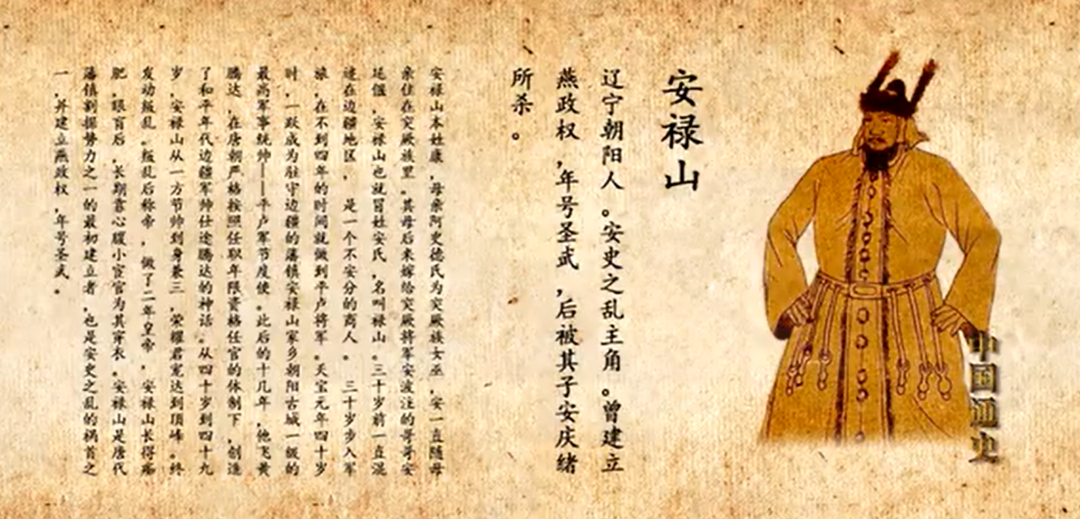 安禄山
辽宁朝阳人。安史之乱主角。曾建立
燕政权,年号圣武,后被其子安庆绪
所杀。
安禄山本姓康,母亲阿史德氏为突厥族女巫,安一直随母
亲住在突厥族里。其母后来嫁给突厥将军安波注的哥哥安
延偃,安禄山也就冒姓安氏,名叫禄山。三十岁前一直混
迹在边疆地区,是一个不安分的商人。三十岁步入军
旅,在不到四年的时间就做到平卢将军。天宝元年四十岁
时,一跃成为驻守边疆的藩镇安禄山家乡朝阳古城一级的
最高军事统帅——平卢军节度使。此后的十几年,他飞黄
腾达,在唐朝严格按照任职年限资格任官的体制下,创造
了和平年代边疆军帅仕途腾达的神话。从四十岁到四十九
岁,安禄山从一方节帅到身兼三,荣耀君宠达到顶峰。终
发动叛乱。叛乱后称帝,做了二年皇帝,安禄山长得痴
肥,眼盲后,长期靠心腹小宦官为其穿衣。安禄山是唐代
藩镇割据势力之一的最初建立者,也是安史之乱的祸首之
一,并建立燕政权,年号圣武。
中国通史